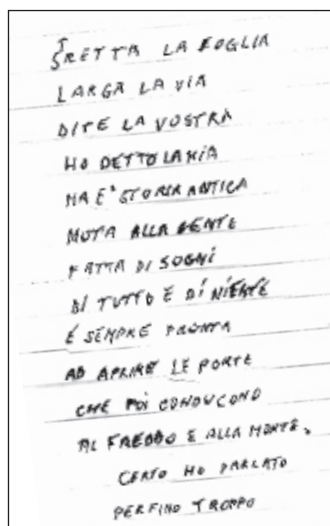 STRETTA LA FOGLIA
LARGA LA VIA
DITE LA VOSTRA
HO DETTO LA MIA
MA E' STORIA ANTICA
NOTA ALLA GENTE
FATTA DI SOGNI
DI TUTTO E DI NIENTE
E SEMPRE PRONTA
AD APRIRE LE PORTE
CHE POI CONDUCONO
AL FREDDO E ALLA MORTE.
CERTO HO PARLATO
PERFINO TROPPO